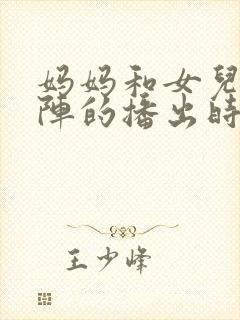 妈妈和女兒
陣的播出時
王少峰